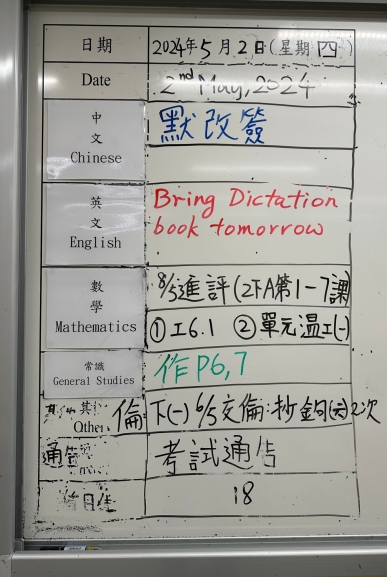 日期 2024年5月2日(星期四)
Date 2nd May, 2024
中文 Chinese 默改簽
英文 English Bring Dictation
book tomorrow
數學 Mathematics 8/5進評(2下A第1-7課)
①工6.1 ②單元温工(一)
常識 General Studies 作P6,7
其他 Other 倫:下(一) 6/5交倫:抄銅(六)2次
通告 考試通告
18